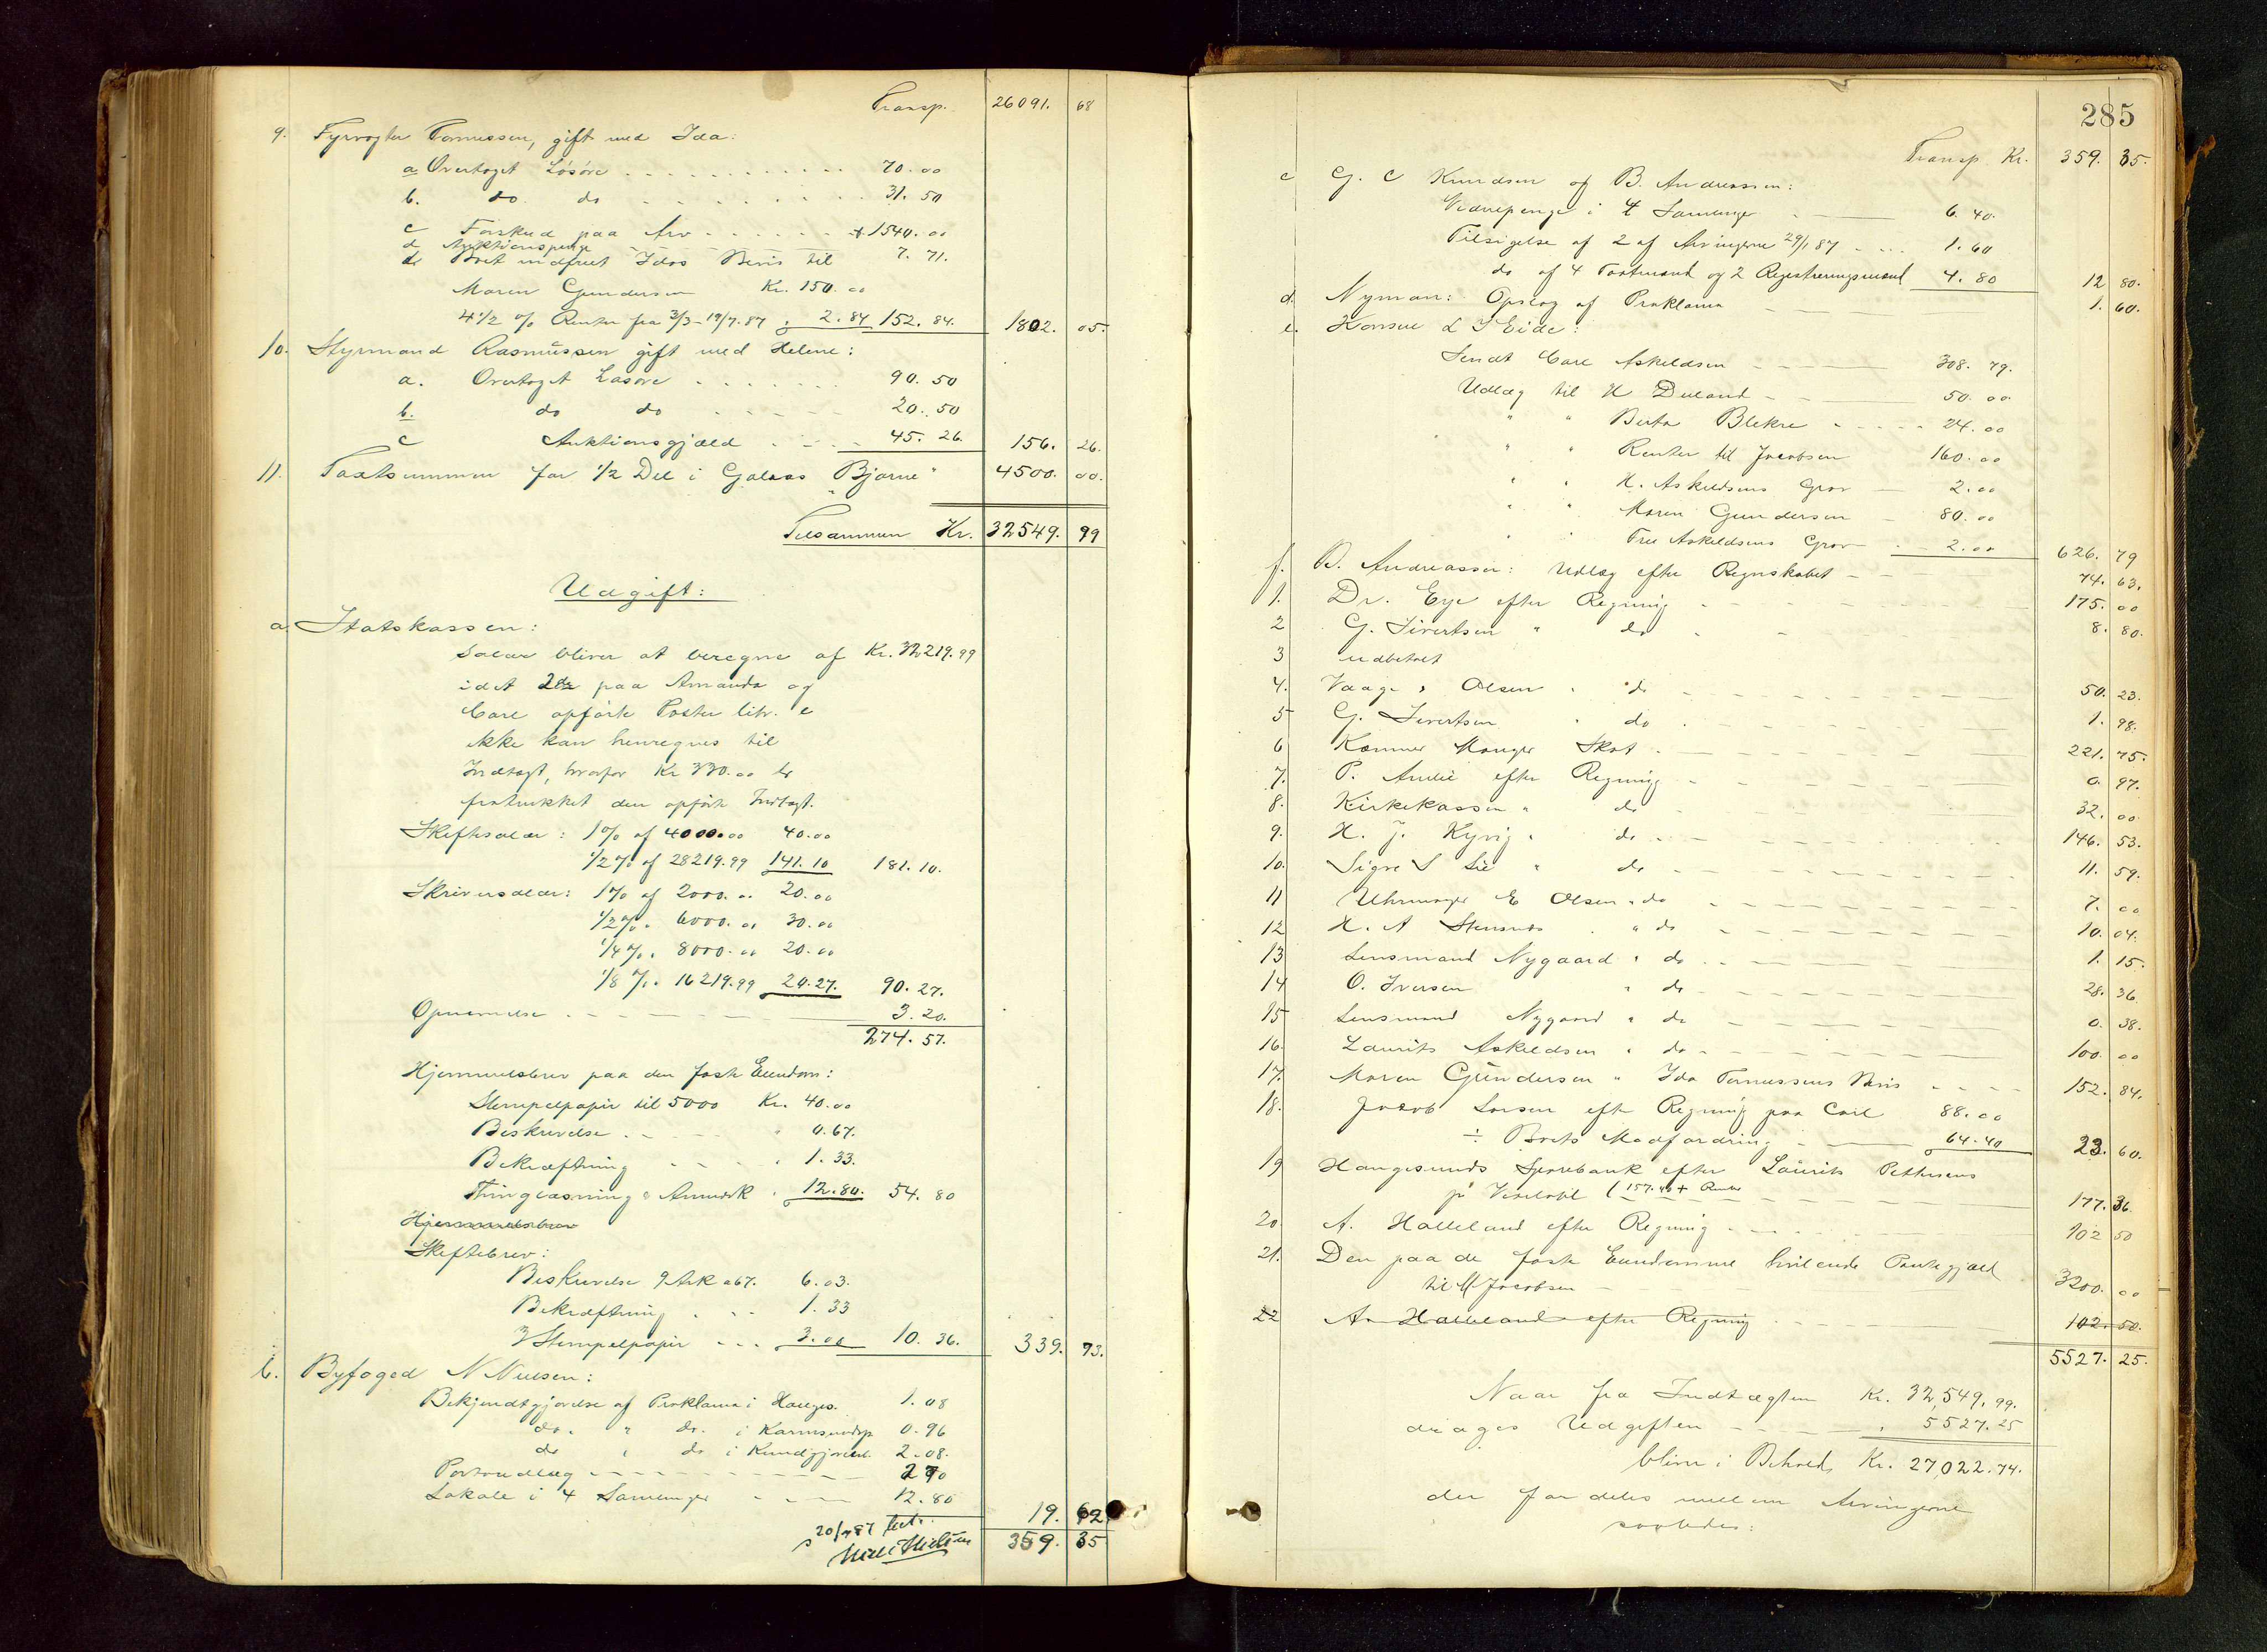 Transp. 26091. 68
9. Fyrvogter Tomessen, gift med Ida:
a Overtaget Løsøre 70.00
b. do do 31.50
c Forskud paa Arv + 1540.00
d Auktionspenge 7.71.
d Boet indfriet Idas Bevis til
Maren Gundersen Kr. 150.00
4 1/2 % Renter fra 3/3 - 19/7.87 2.84 152.84. 1802. 05.
10. Styrmand Rasmussen gift med Helene:
a. Overtaget Løsøre 90.50
b. do do 20.50
c Auktionsgjæld 45.26. 156. 26.
11. Taxtsummen for 1/2 Del i Galeas "Bjarne" 4500. 00.
Tilsammen Kr. 32549. 99
Udgift:
a. Statskassen:
Salær bliver at beregne af Kr. 32219.99
idet de paa Amanda og
Carl opførte Poster litr. c
ikke kan henregnes til
Indtægt, hvorfor Kr 330.00 er
fratrukket den opførte Indtægt.
Skiftesalær: 1% af 4000.00 40.00
1/2% af 28219.99 141.10 181.10.
Skriversalær: 1% af 2000.00 20.00
1/2% " 6000.00 30.00
1/4% " 8000.00 20.00
1/8 % " 16219.99 20.27. 90.27.
Opnævnelse 3.20.
274.57.
Hjemmelsbrev paa den faste Eiendom:
Stempelpapir til 5000 Kr. 40.00
Beskrivelse " 0.67.
Bekræftning " 1.33.
Thinglæsning & Anmærk " 12.80. 54.80
Hjemmelsbrev
Skiftebrev:
Beskrivelse 9 Ark a 67. 6.03.
Bekræftning 1.33
3 Stempelpapir 3.00 10.36. 339. 73.
b. Byfoged N Nielsen:
Bekjendtgjørelse af Proklama i Hauges. 1.08
do. " do. i Karmsundsp 0.96
do " do i Kundgjørelsest. 2.08.
Portoudlæg 2.70
Lokale i 4 Samlinger 12.80 19. 62
20/7 87
359. 35
285
Transp Kr. 359. 35.
c G. C Knudsen og B. Andreassen:
Vidnepenge i 4 Samlinger 6.40.
Tilsigelse af 2 af Arvingerne 29/1 87 1.60
do af 4 Taxtmænd og 2 Registreringsmænd 4.80 12 80.
d. Nyman: Opslag af Proklama 1. 60.
e. Konsul L J Eide:
Sendt Carl Askeldsen 308.79.
Udlæg til H Dueland 50.00
" " Berta Blekre 24.00
" " Renter til Jacobsen 160.00
" " H. Askeldsens Grav 2.00
" " Maren Gundersen 80.00
" " Fru Askeldsens Grav 2.00 626. 79
f. B. Andreassen: Udlæg efter Regnskabet 74. 63.
1. Dr. Eye efter Regning 175. 00
2 G. Sivertsen " do 8. 80.
3 udbetalt
4. Vaage & Olsen " do 50. 23.
5 G. Sivertsen " do 1. 98.
6 Kæmner Monge Skat 221. 75.
7. P. Amlie efter Regning 0. 97.
8. Kirkekassen " do 32. 00
9. H. J. Kyvig " do 146. 53.
10. Sigve S Lie " do 11. 59.
11 Uhrmager E Olsen " do 7. 00
12 H. A Stensnes " do 10. 04.
13 Lensmand Nygaard " do 1. 15.
14 O. Iversen " do 28. 36
15 Lensmand Nygaard " do 0. 38.
16. Laurits Askeldsen " do 100. 00
17. Maren Gundersen " Ida Tomessens Bevis 152. 84.
18. Jacob Larsen efter Regning paa Carl 88.00
÷ Boets Modfordring 64.40 23. 60.
19 Haugesunds Sparebank efter Laurits Pettersens
pr Vexelobl (157.40 + Renter 177. 36.
20. A. Halleland efter Regning 102 50
21. Den paa de faste Eiendomme hvilende Pantegjæld
til M Jacobsen 3200. 00
22 A. Halleland efter Regning 102. 50.
5527. 25.
Naar fra Indtægten Kr. 32,549,99.
drages Udgiften " 5527.25
bliver i Behold Kr. 27,022.74.
der fordeles mellem Arvingerne
saaledes: